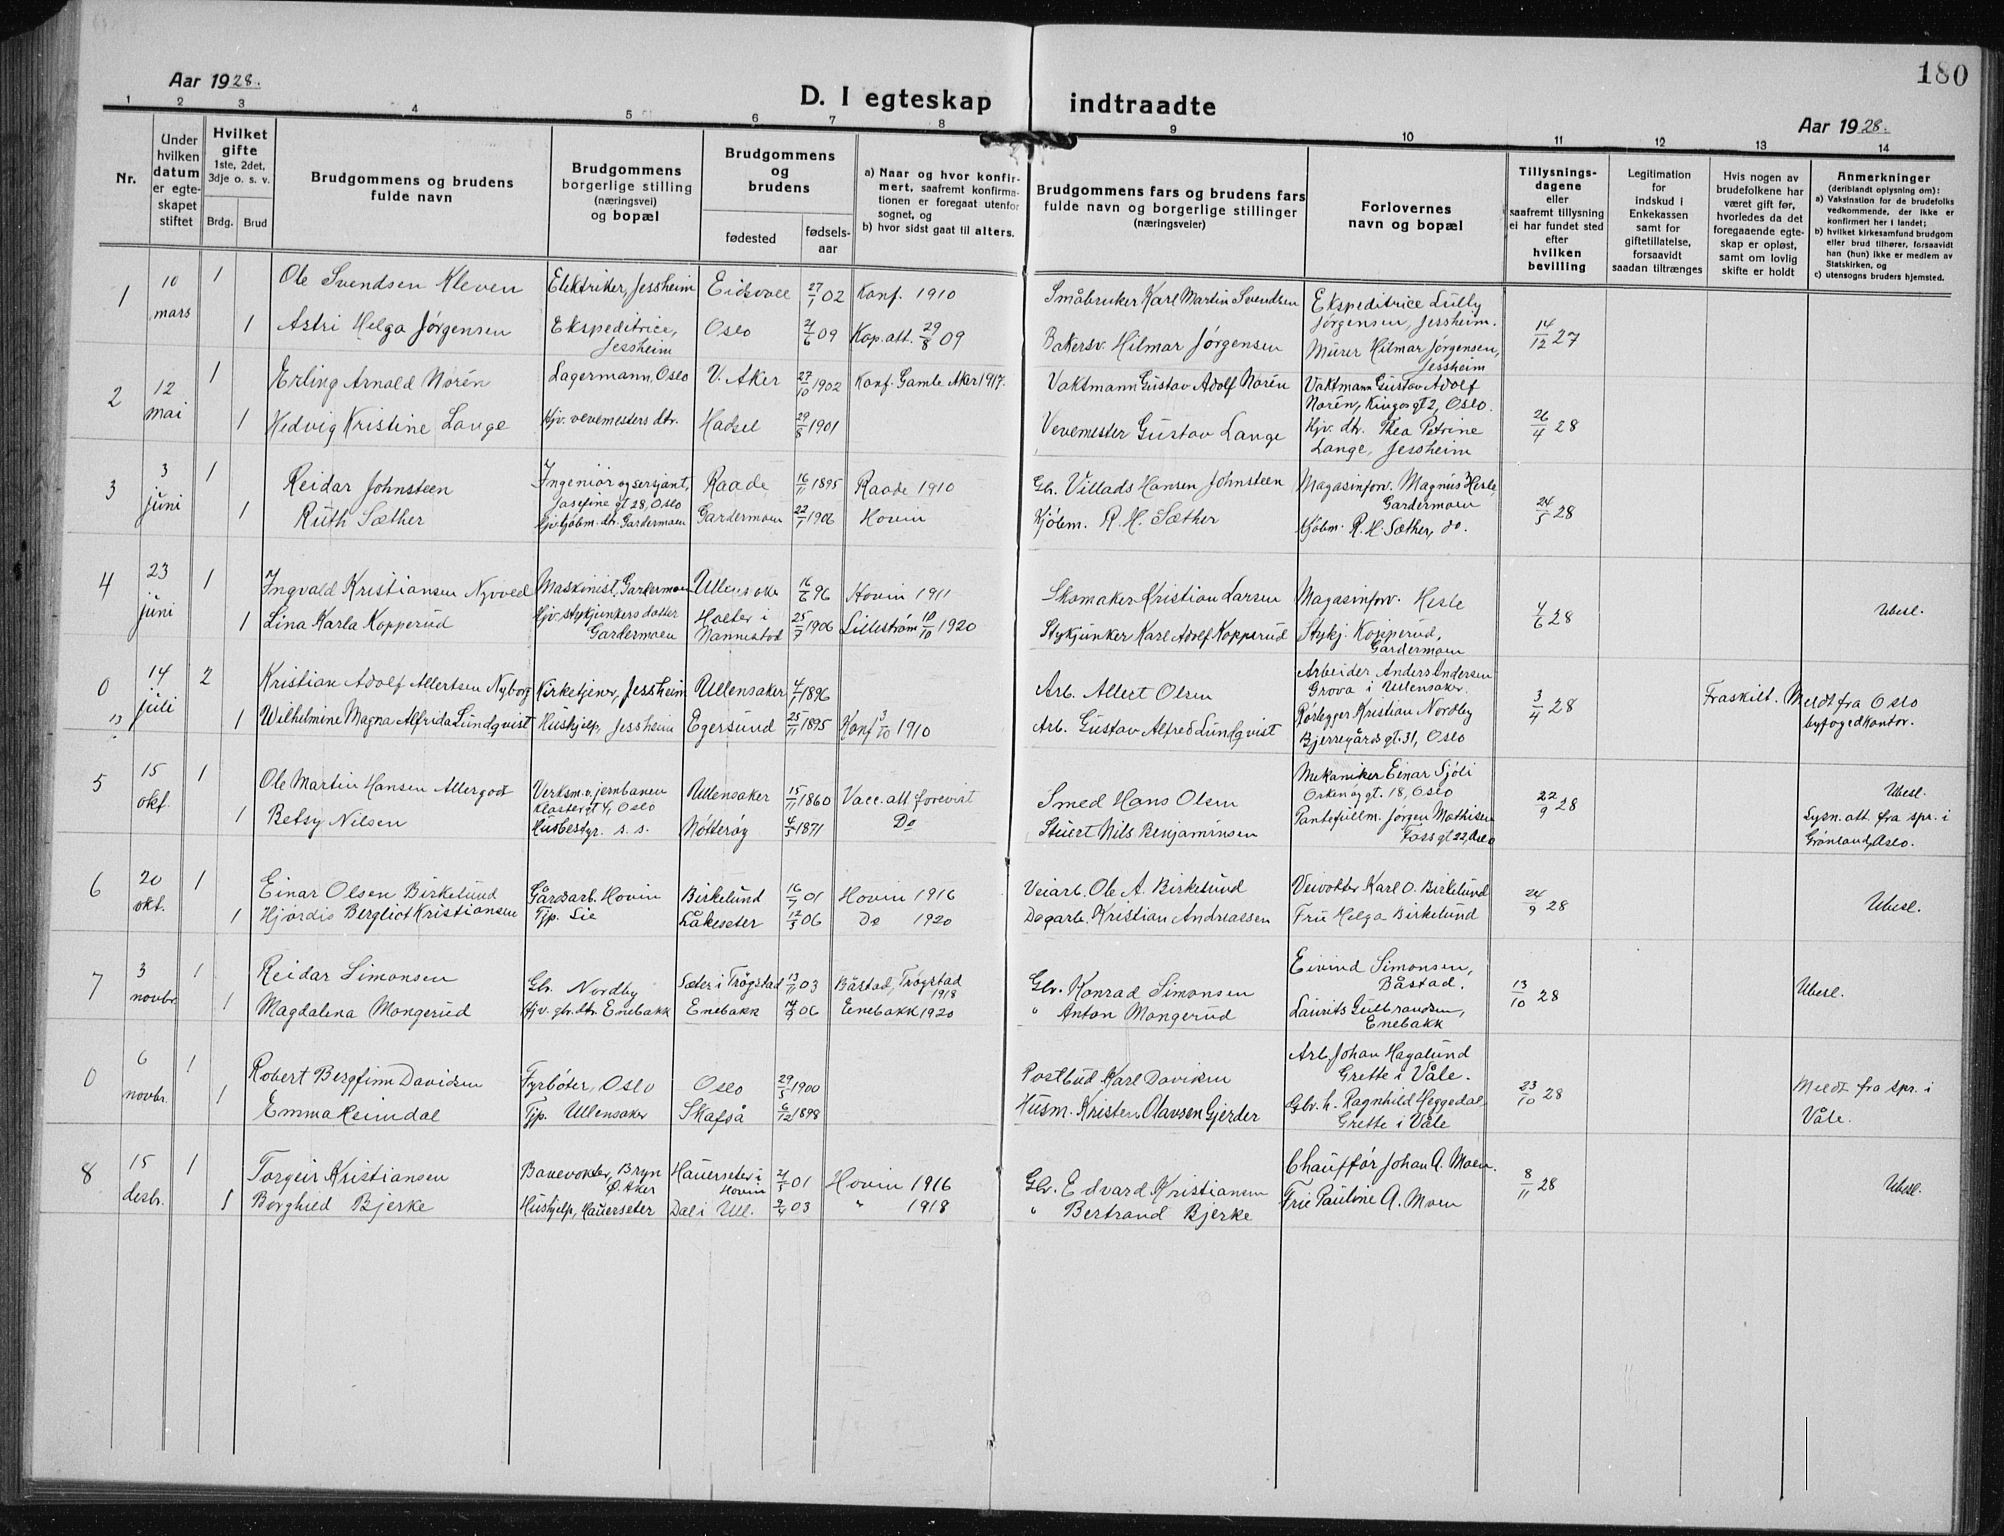 180
Aar 1928.
D. I egteskap indtraadte
Aar 1928.
1 2 3 4 5 6 7 8 9 10 11 12 13 14
Nr.
Under hvilken datum er egte-skapet stiftet
Hvilket gifte
1ste, 2det, 3dje o. s. v.
Brdg. Brud
Brudgommens og brudens fulde navn
Brudgommens borgerlige stilling (næringsvei) og bopæl
Brudgommens og brudens
fødested
fødsels-aar
a) Naar og hvor konfir-mert, saafremt konfirma-tionen er foregaat utenfor sognet, og
b) hvor sidst gaat til alters.
Brudgommens fars og brudens fars fulde navn og borgerlige stillinger (næringsveier)
Forlovernes navn og bopæl
Tillysnings-dagene eller saafremt tillysning ei har fundet sted efter hvilken bevilling
Legitimation for indskud i Enkekassen samt for giftetillatelse, forsaavidt saadan tiltrænges
Hvis nogen av brudefolkene har været gift før, hvorledes da det foregaaende egte-skap er opløst, samt om lovlig skifte er holdt
Anmerkninger
(deriblandt oplysning om):
a) Vaksination for de brudefolks vedkommende, der ikke er konfirmert her i landet;
b) hvilket kirkesamfund brudgom eller brud tilhører, forsaavidt han (hun) ikke er medlem av Statskirken, og
c) utensogns bruders hjemsted.
1 10 mars 1 Ole Svendsen Kleven Elektriker, Jessheim Eidsvoll 27/1 02 Konf. 1910 Småbruker Karl Martin Svendsen Ekspeditrice Lully Jørgensen, Jessheim.
1 Astri Helga Jørgensen Ekspeditrice, Jessheim Oslo 2/6 09 Kop.att. 29/8 09 Bakersv. Hilmar Jørgensen Murer Hilmar Jørgensen, Jessheim 14/12 27
2 12 mai 1 Erling Arnold Norén Lagermann, Oslo V. Aker 27/10 1902 Konf. Gamle Aker 1917. Vaktmann Gustav Adolf Norén Vaktmann Gustav Adolf Norén, Kingosgt 2, Oslo.
1 Hedvig Kristine Lange Hjv. vevemesters dtr. Hadsel 29/8 1901 Vevemester Gustav Lange Hjv. dtr. Thea Petrine Lange, Jessheim 26/4 28
3 3 juni 1 Reidar Johnsteen Ingeniør og sersjant, Josefine gt 28, Oslo Raade 16/11 1895 Raade 1910 Gbr. Villads Hansen Johnsteen Magasinforv. Magnus Hesle, Gardermoen
1 Ruth Sæther Hjv. kjøbm. dtr. Gardermoen Gardermoen 22/1 1906 Hovin Kjøbm. R. H. Sæther Kjøbm. R. H. Sæther, do. 24/5 28
4 23 juni 1 Ingvald Kristiansen Nyvold Maskinist, Gardermoen Ullensaker 16/6 96 Hovin 1911 Skomaker Kristian Larsen Magasinforv. Hesle
1 Lina Karla Kopperud Hjv. stykjunkers datter Gardermoen Holter i Nannestad 25/7 1906 Lillestrøm 10/10 1920 Stykjunker Karl Adolf Kopperud Stykj. Kopperud, Gardermoen 4/6 28 Ubesl.
0 14 juli 2 Kristian Adolf Allertsen Nyborg Kirketjener, Jessheim Ullensaker 4/1 1896 Arb. Allert Olsen Arbeider Anders Andersen Grova i Ullensaker. Fraskilt. Meldt fra Oslo byfogedkontor.
13 1 Wilhelmine Magna Alfrida Lundqvist Hushjelp, Jessheim Egersund 25/11 1895 Konf 3/10 1910 Arb. Gustav Alfred Lundqvist Rørlegger Kristian Nordby Bjerregårdsgt. 31, Oslo 3/4 28
5 15 okt. 1 Ole Martin Hansen Allergodt Verksm. v. jernbanen Klostergt 4, Oslo Ullensaker 15/11 1860 Vacc. att. forevist Smed Hans Olsen Mekaniker Einar Sjöli Orknøygt. 18, Oslo 22/9 28 Ubesl.
1 Betsy Nilsen Husbestyr. s. s. Nøtterøy 4/3 1871 Do Stuert Nils Benjaminsen Pantefullm. Jørgen Mathisen Fossgt 22, Oslo Lysn. att. fra spr. i Grønland, Oslo.
6 20 okt. 1 Einar Olsen Birkelund Gårdsarb. Hovin Birkelund 16/7 01 Hovin 1916 Veiarb. Ole A. Birkelund Veivokter Karl O. Birkelund
1 Hjørdis Bergliot Kristiansen Tjp. Lie Låkeseter 12/3 06 Do 1920 Dagarb. Kristian Andreassen Fru Helga Birkelund 24/9 28 Ubesl.
7 3 novbr. 1 Reidar Simonsen Gbr. Nordby Sæter i Trøgstad 13/11 03 Båstad, Trøgstad 1918 Gbr. Konrad Simonsen Eivind Simonsen, Båstad.
1 Magdalena Mangerud Hjv. gbr. dtr. Enebakk Enebakk 06 Enebakk 1920 " Anton Mangerud Laurits Gulbrandsen, Enebakk 13/10 28 Ubesl.
0 6 novbr. 1 Robert Bergfinn Davidsen Fyrbøter, Oslo Oslo 29/5 1900 Postbud Karl Davidsen Arb. Johan Hagalund Grette i Våle.
1 Emma Reimdal Tjp. Ullensaker Skafså 6/12 1898 Husm. Kristen Olavsen Gjerder Gbr. h. Ragnhild Heggedal, Grette i Våle 23/10 28 Meldt fra spr. i Våle.
8 15 desbr. 1 Torgeir Kristiansen Banevokter, Bryn Ø. Aker Hauerseter i Hovin 2/5 01 Hovin 1916 Gbr. Edvard Kristiansen Chauffør Johan A. Moen.
1 Borghild Bjerke Hushjelp, Hauerseter Dal i Ull. 9/4 03 " 1918 " Bertrand Bjerke Fru Pauline A. Moen 8/11 28 Ubesl.